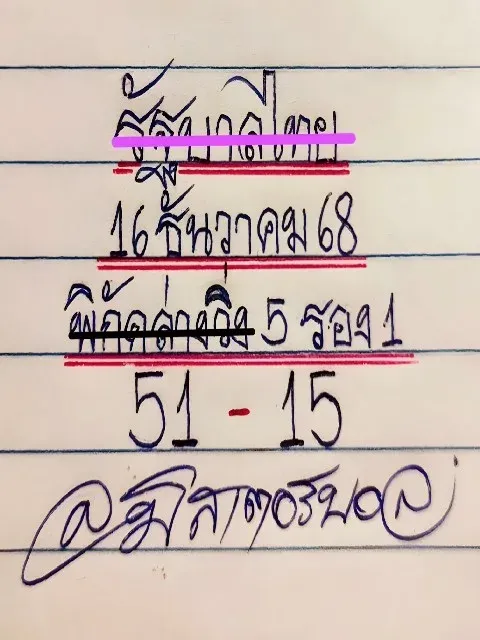 รัฐบาลไทย
16 ธันวาคม 68
พิกัดล่างวิ่ง 5 รอง 1
51 - 15
มิสเตอร์บอล